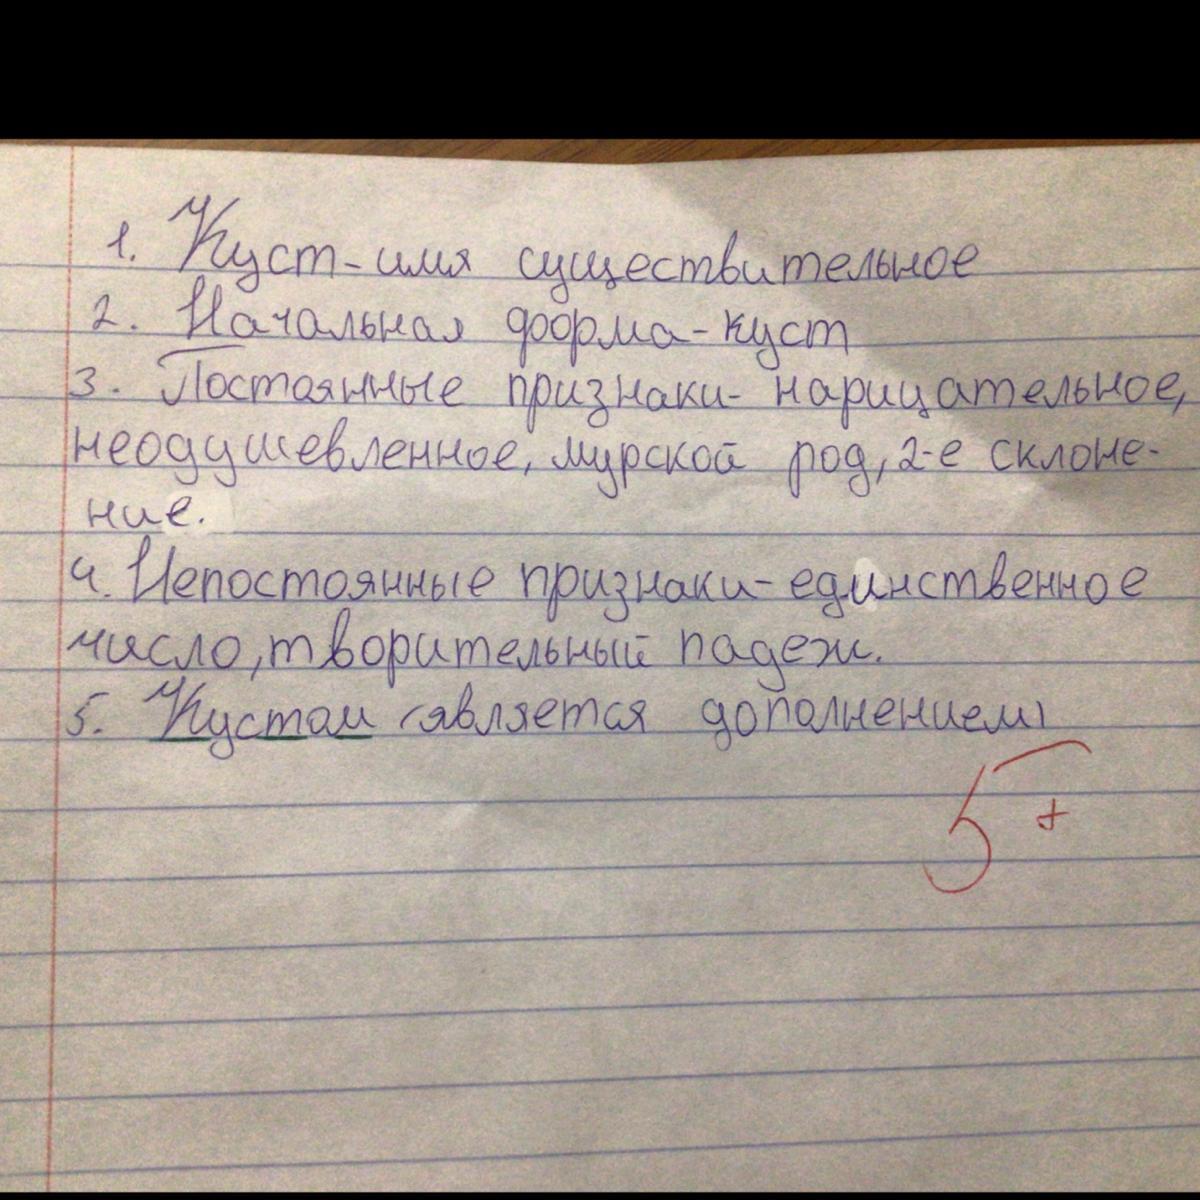 1. Куст-имя существительное
2. Начальная форма-куст
3. Постоянные признаки- нарицательное,
неодушевленное, мурской род, 2-е склоне-
ние.
4. Непостоянные признаки-единственное
число, творительный падеж.
5. Кустом (является дополнением)
5+